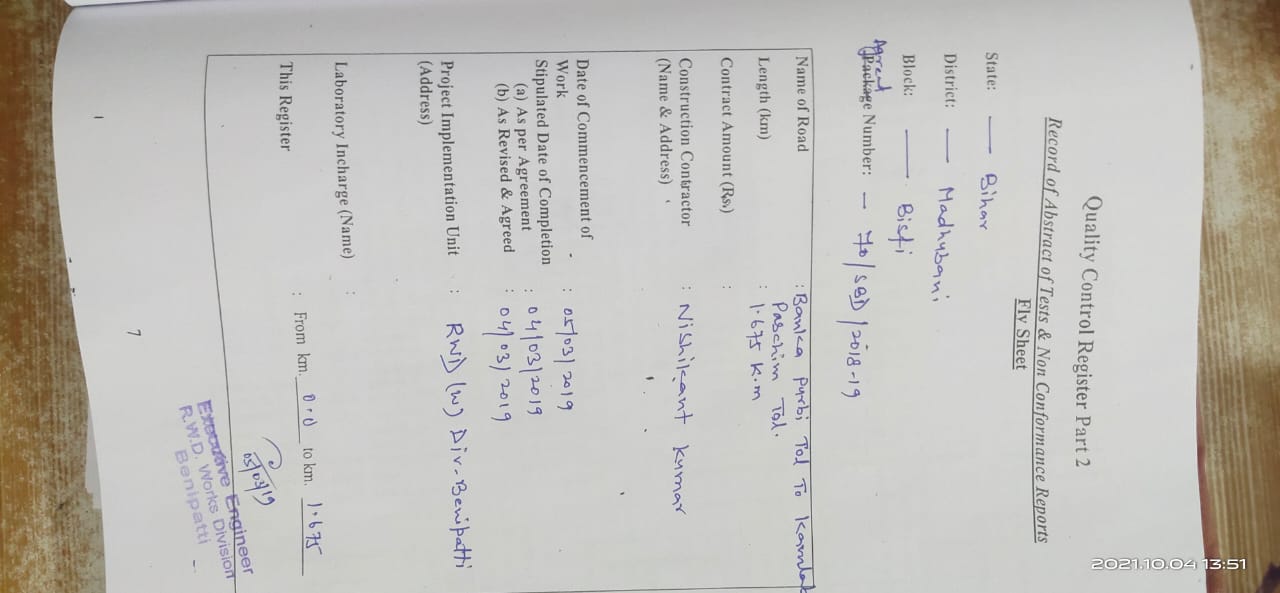 Quality Control Register Part 2
Record of Abstract of Tests & Non Conformance Reports
Fly Sheet
State: — Bihar
District: — Madhubani
Block: — Bisfi
Agreed
Package Number: — 70/SBD/2018-19
Name of Road : Banka Purbi Tol To
Paschim Tol.
Length (km) : 1.675 K.m
Contract Amount (Rs.) :
Construction Contractor : Nishikant Kumar
(Name & Address)
Date of Commencement of : 05/03/2019
Work
Stipulated Date of Completion
(a) As per Agreement : 04/03/2019
(b) As Revised & Agreed : 04/03/2019
Project Implementation Unit : RWD (W) Div-Benipatti
(Address)
Laboratory Incharge (Name) :
This Register : From km. 0.0 to km. 1.675
05/03/19
Executive Engineer
R.W.D. Works Division
Benipatti
7
2021.10.04 13:51